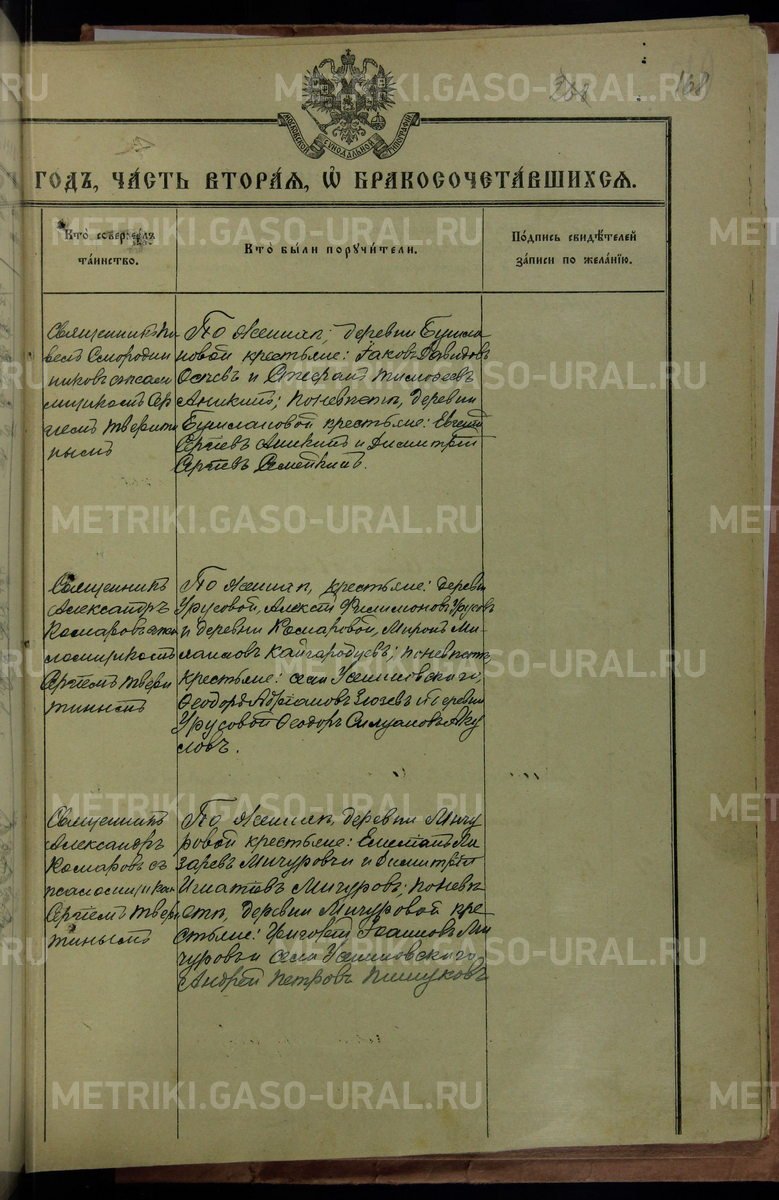 268
168
МОСКОВСКОЙ СѴНОДАЛЬНОЙ ТИПОГРАФІИ
ГОДЪ, ЧА́СТЬ ВТОРА́Я, Ѡ҆ БРАКОСОЧЕТА́ВШИХСЯ.
Кто̀ соверши́лъ
та́инство.
Кто̀ бы́ли поручи́тели.
По́дпись свидѣ́телей
за́писи по жела́нію.
Священникъ Па
велъ Смородин
никовъ съ псало
мщикомъ Сер
гіемъ Твериты
нымъ
По женихѣ; деревни Бушла
новой крестьяне: Іаковъ Давидовъ
и Стефанъ Тимоѳеевъ
Аникинъ; по невѣстѣ, деревни
Бушлановой крестьяне: Евгеній
Сергѣевъ Аникинъ и Димитрій
Сергѣевъ Семейкинъ.
Священникъ
Александръ
Комаровъ съ псал
ломщикомъ
Сергіемъ Твери
тинымъ
По женихѣ, крестьяне: дерев
Урусовой, Алексій Филимоновъ Урусовъ
и деревни Комаровой, Миронъ Ми
лаимовъ Кайгародцевъ; по невѣстѣ,
крестьяне: села
Ѳеодоръ Адріановъ Зюзевъ и деревни
Урусовой Ѳеодоръ Силуановъ Аку
ловъ.
Священникъ
Александръ
Комаровъ съ
псаломщиком
Сергіемъ Твери
тинымъ
По женихѣ, деревни Мичу
ровой крестьяне: Емеліанъ Ла
заревъ Мичуровъ и Димитрій
Игнатіевъ Мичуровъ; по невѣ
стѣ, деревни Мичуровой кре
стьяне: Григорій Іоанновъ Ми
чуровъ и села
Андрей Петровъ Пишуковъ
METRIKI.GASO-URAL.RU